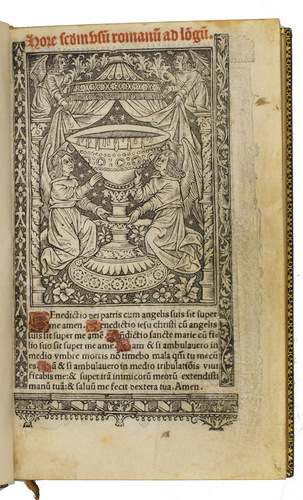 Hore scd̃m vsũ romanũ ad lõgũ.
BEnedictio dei patris cum angelis suis sit super
me amen. Benedictio iesu christi cũ angelis
suis sit super me amẽ. Bñdictio sancte marie cũ fi
lio suo sit super me amẽ. Nam & si ambulauero in
medio vmbre mortis nõ timebo mala qm̃ tu mecũ
es. Nã & si ambulauero in medio tribulatiõis viui
ficabis me: & super irã inimicorũ meorũ extendisti
manũ tuã: & saluũ me fecit dextera tua. Amen.